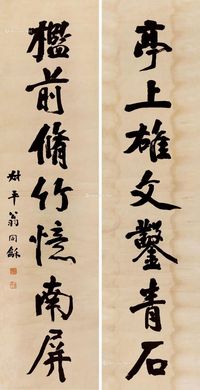 亭上雄文鑿青石
檻前脩竹憶南屏
叔平翁同龢